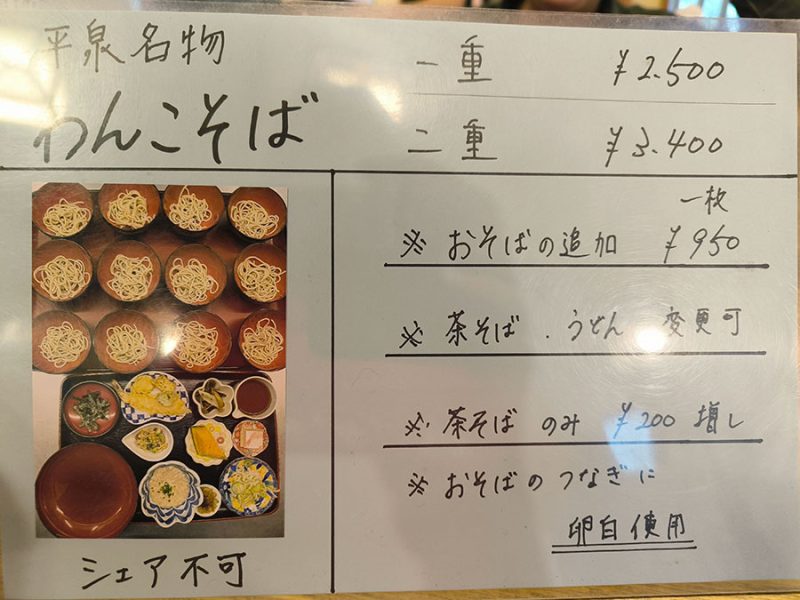 平泉名物
わんこそば
一重 ¥2.500
二重 ¥3.400
一枚
※ おそばの追加 ¥950
※ 茶そば . うどん 変更可
※ 茶そば のみ ¥200 増し
※ おそばの つなぎに
卵白使用
シェア不可